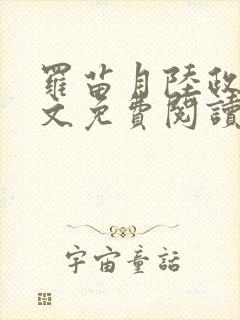 羅苗月陸政
文免費閱讀
宇宙童話